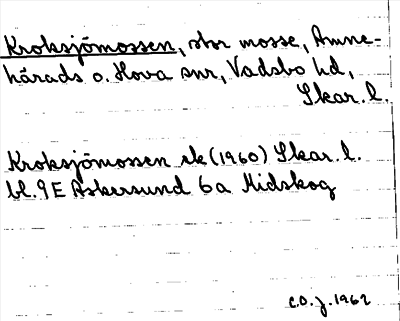 Kroksjömossen, stor mosse, Amne-
härads o. Hova snr, Vadsbo hd,
Skar. l.
Kroksjömossen rk (1960) Skar. l.
bl. 9E Askersund 6a Midskog
C.O.j. 1962